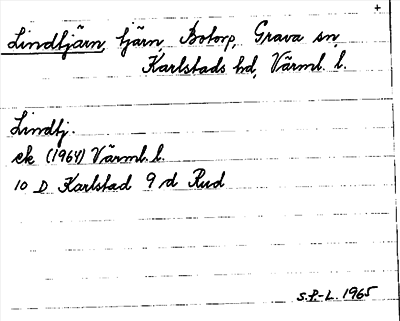 +
Lindtjärn, tjärn, Botorp, Grava sn,
Karlstads hd, Värml. l.
Lindtj.
ek (1964) Värml. l.
10 D Karlstad 9 d Rud
S.P.-L. 1965